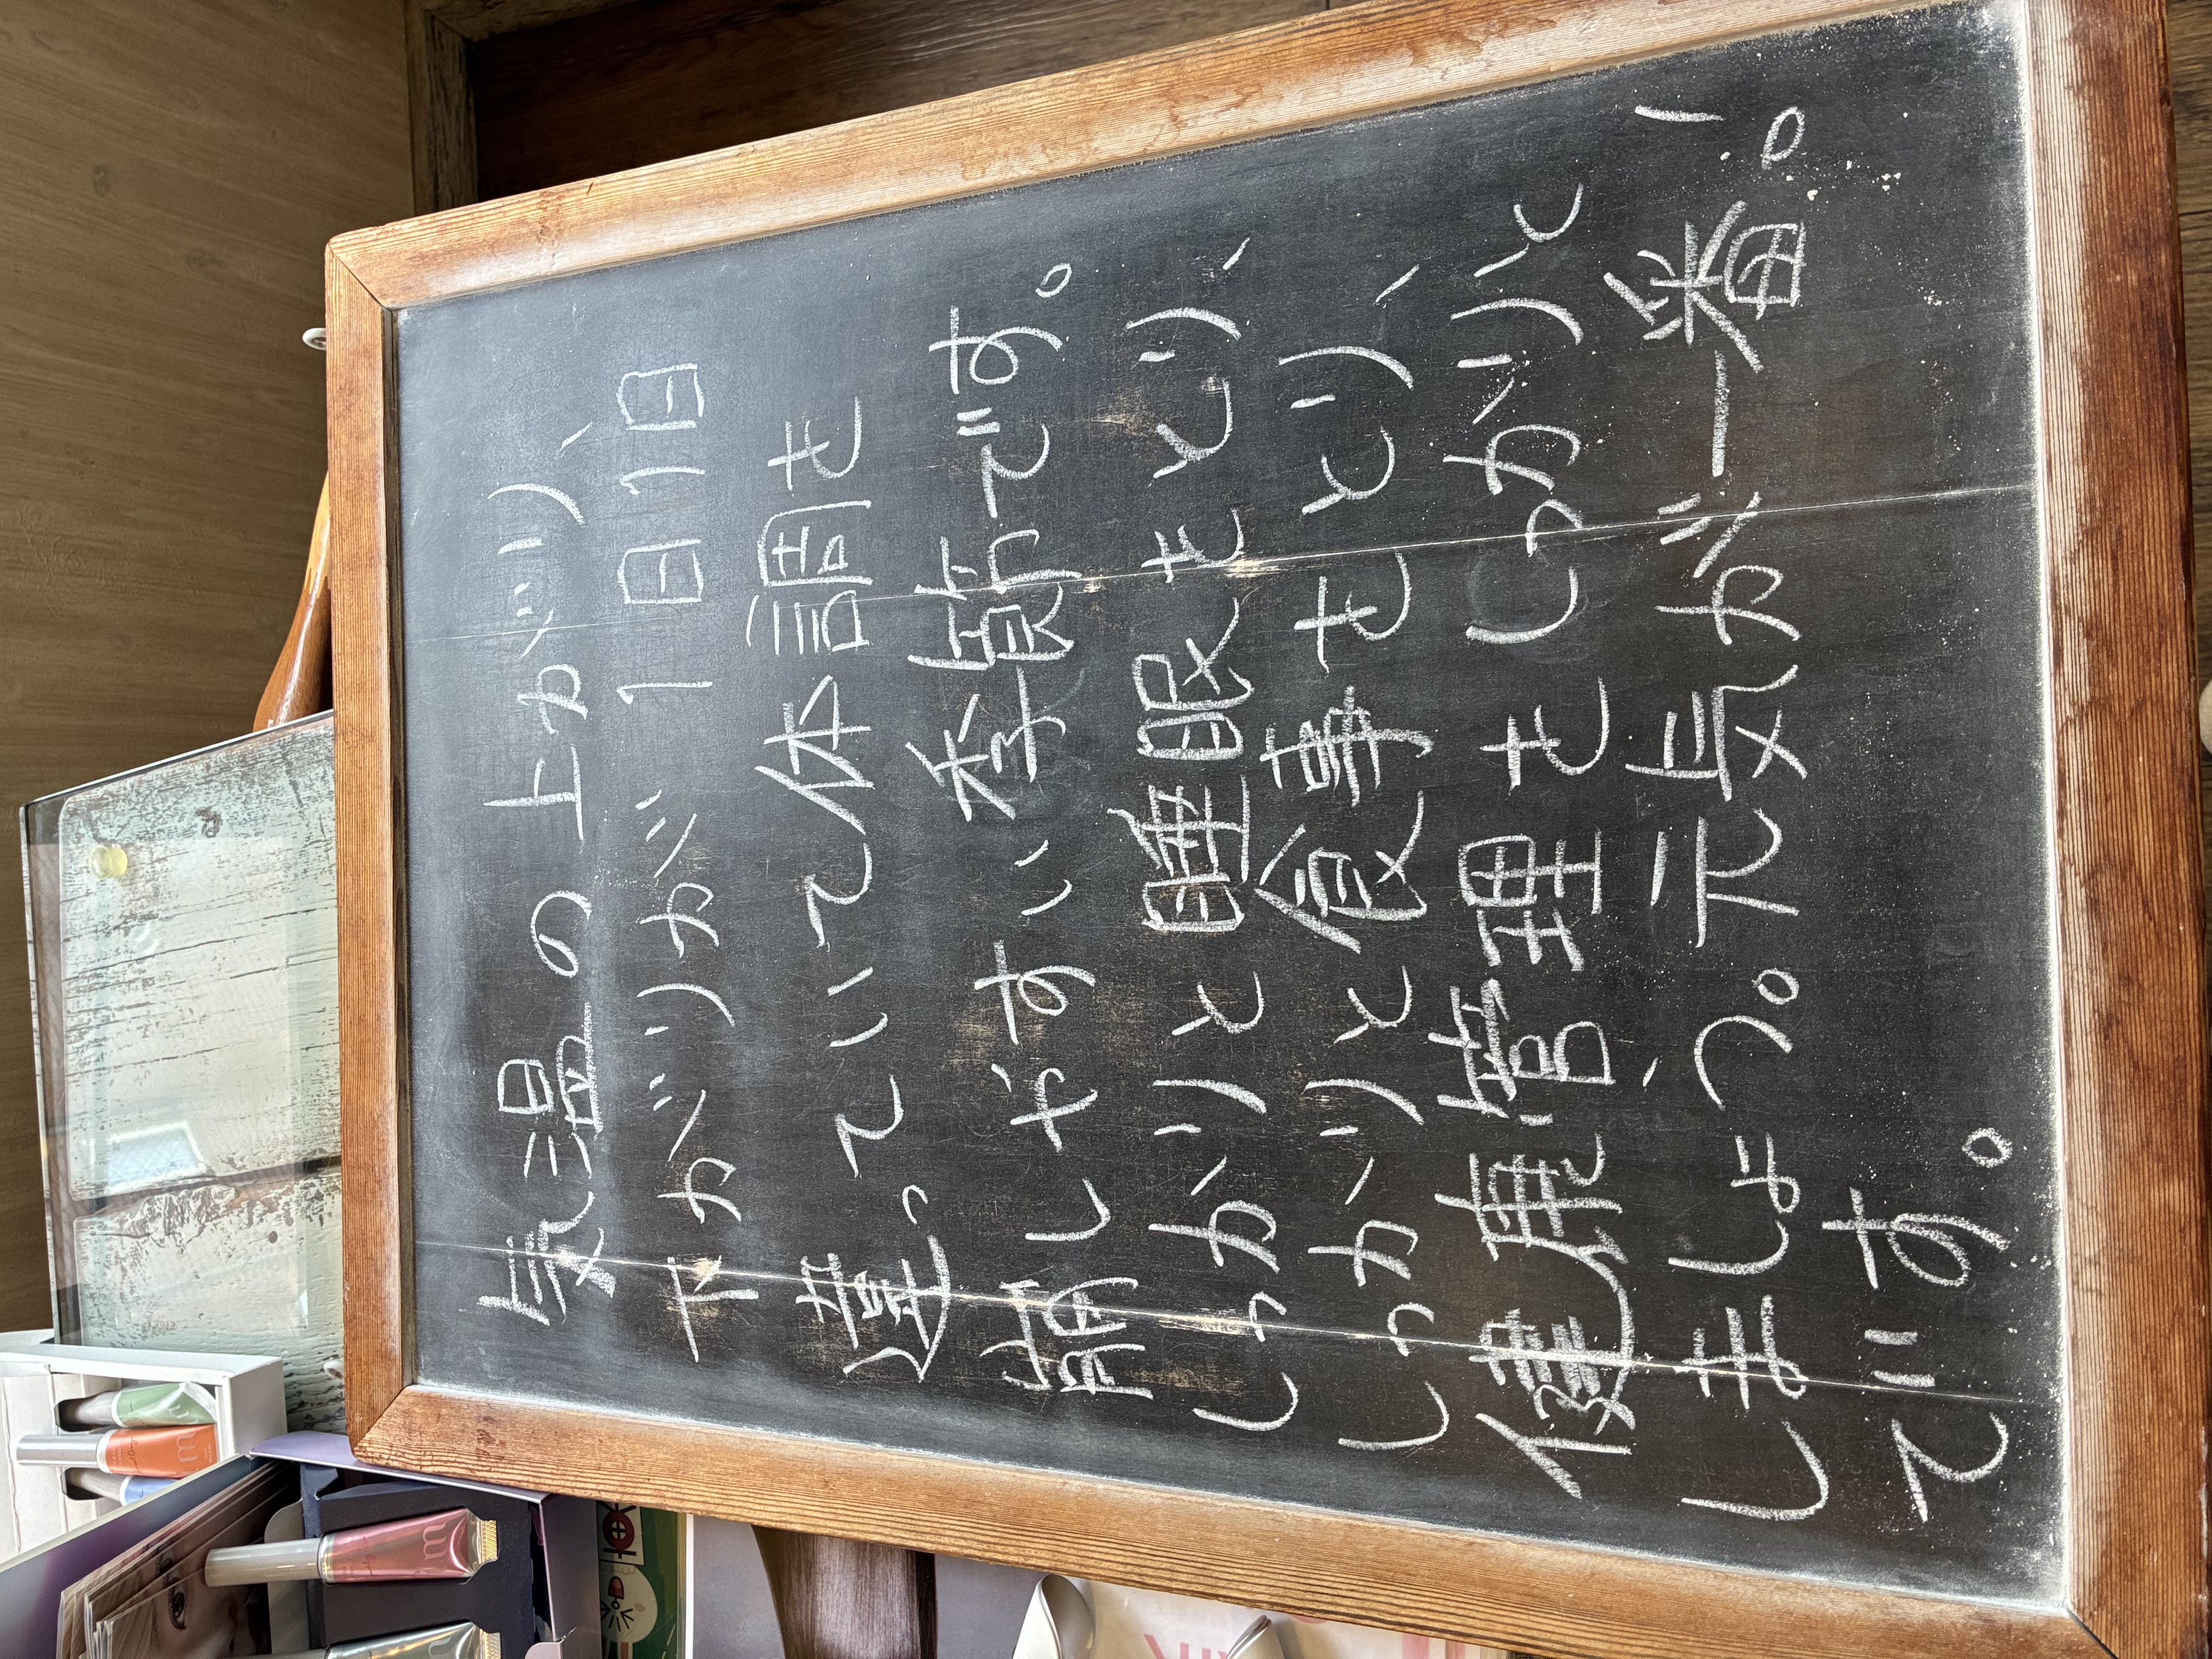 気温の上がり、
下がりが1日1日
違っていて体調も
崩しやすい季節です。
しっかりと睡眠をとり、
しっかりと食事もとり、
健康管理もしっかりと
しましょう。元気が一番
です。
m
m